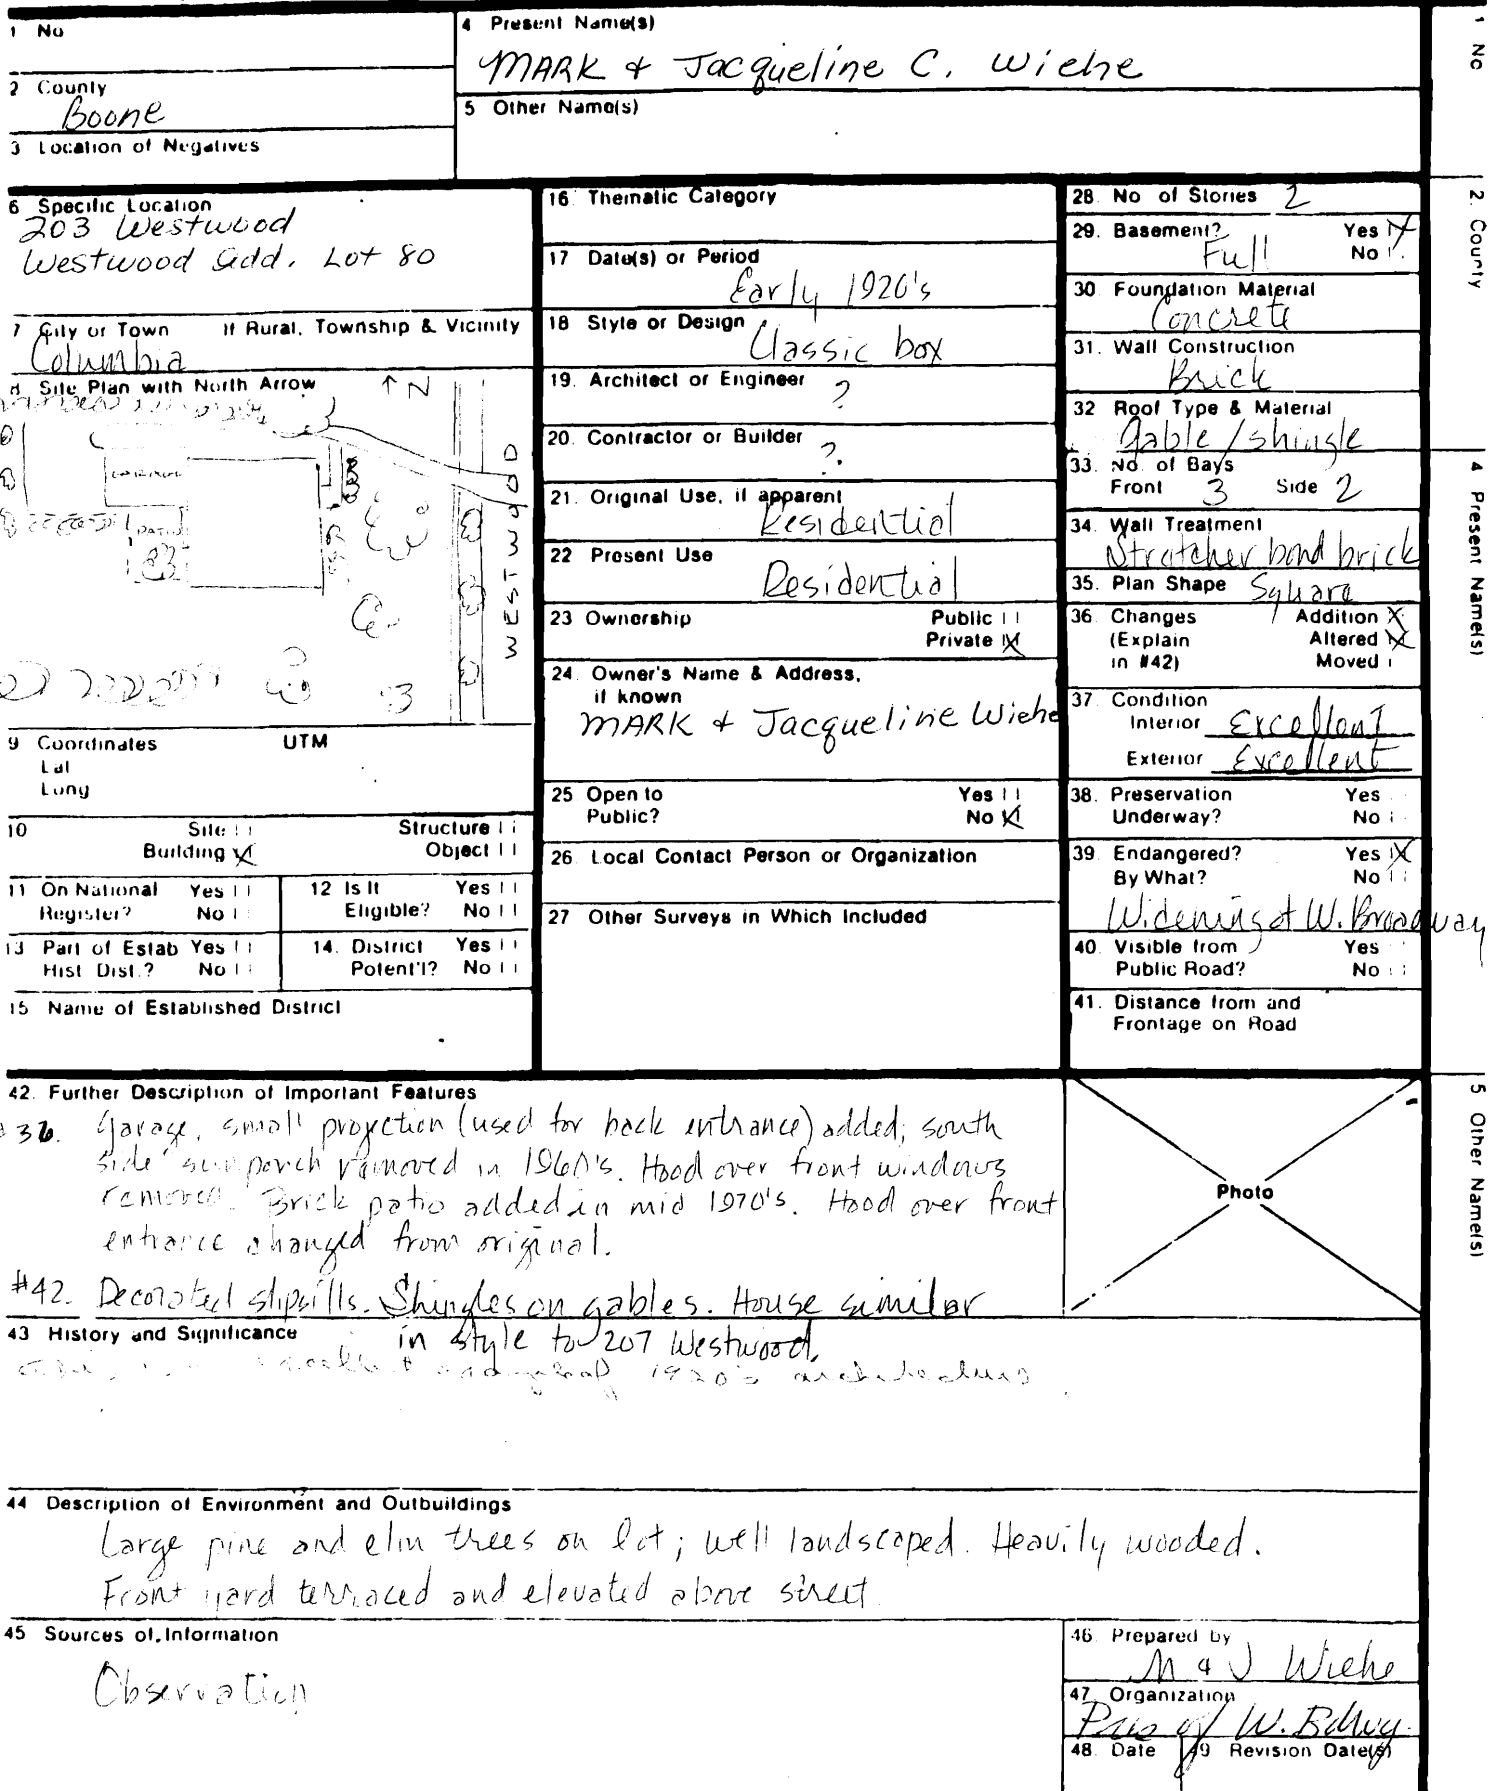 1 No
4 Present Name(s)
MARK & Jacqueline C. Wiehe
2 County
Boone
5 Other Name(s)
3 Location of Negatives
6 Specific Location
203 Westwood
Westwood Add. Lot 80
7 City or Town If Rural, Township & Vicinity
Columbia
8 Site Plan with North Arrow
N
WESTWOOD
PATIO
9 Coordinates UTM
Lat
Long
10 Site Structure
Building X Object
11 On National Register? Yes No
12 Is It Eligible? Yes No
13 Part of Estab Hist Dist.? Yes No
14. District Potent'l? Yes No
15 Name of Established District
16 Thematic Category
17 Date(s) or Period
Early 1920's
18 Style or Design
Classic box
19. Architect or Engineer
?
20. Contractor or Builder
?
21. Original Use, if apparent
Residential
22 Present Use
Residential
23 Ownership Public
Private X
24. Owner's Name & Address,
if known
MARK & Jacqueline Wiehe
25 Open to Yes
Public? No X
26. Local Contact Person or Organization
27 Other Surveys in Which Included
28. No of Stories 2
29. Basement? Yes X
Full No
30. Foundation Material
Concrete
31. Wall Construction
Brick
32 Roof Type & Material
Gable/shingle
33. No. of Bays
Front 3 Side 2
34. Wall Treatment
Stratcher bond brick
35. Plan Shape Square
36. Changes Addition X
(Explain Altered X
in #42) Moved
37. Condition
Interior Excellent
Exterior Excellent
38. Preservation Yes
Underway? No
39. Endangered? Yes X
By What? No
Widening of W. Broadway
40. Visible from Yes
Public Road? No
41. Distance from and
Frontage on Road
42. Further Description of Important Features
36. Garage, small projection (used for back entrance) added; south
side sun porch removed in 1960's. Hood over front windows
removed. Brick patio added in mid 1970's. Hood over front
entrance changed from original.
#42. Decorated slipsills. Shingles on gables. House similar
in style to 207 Westwood.
Photo
43 History and Significance
1920's architecture
44 Description of Environment and Outbuildings
Large pine and elm trees on lot; well landscaped. Heavily wooded.
Front yard terraced and elevated above street
45 Sources of Information
Observation
46. Prepared by
M & J Wiehe
47. Organization
Pres of W. Bdwy.
48. Date 49 Revision Date(s)
1 No
2. County
4 Present Name(s)
5 Other Name(s)